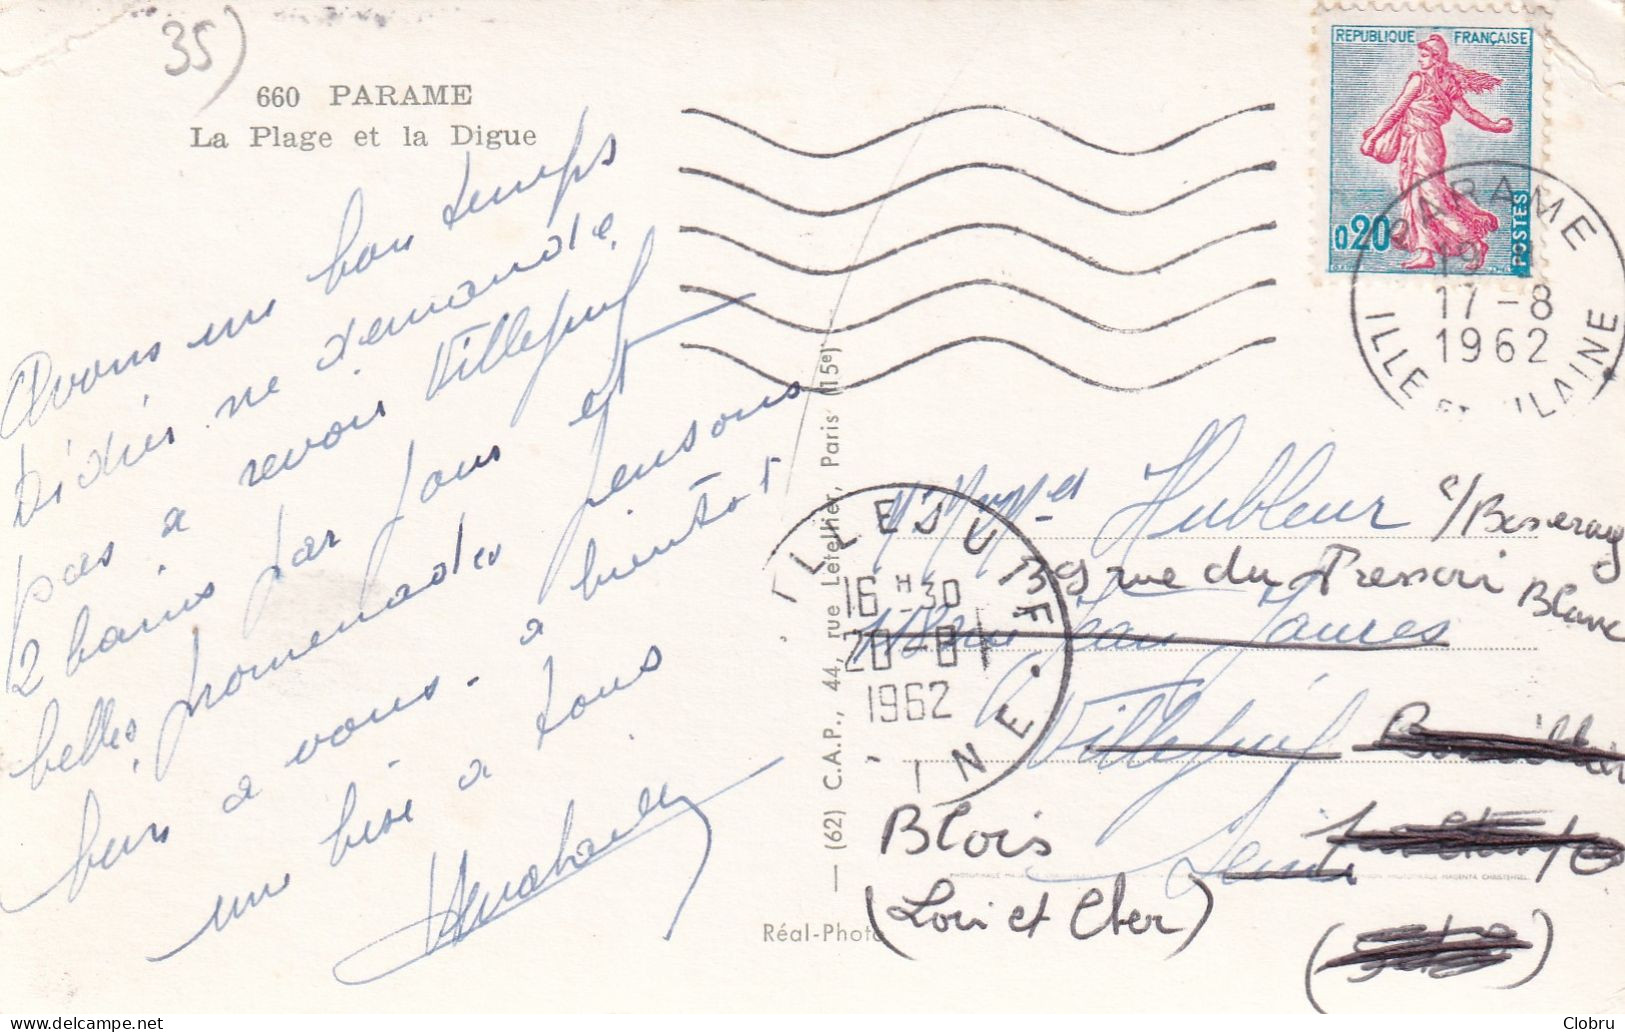 35)
660 PARAME
La Plage et la Digue
Avons un bon temps
Didier ne demande
pas à revoir Villejuif
2 bains par jour et
belles promenades pensons
bien à vous. à bientôt
une bise à tous
REPUBLIQUE FRANÇAISE
0,20
POSTES
PARAME
17-8
1962
ILLE ET VILAINE
Hubleur
rue du Pressoir
Blanc
Jean Jaures
Villejuif
Seine
Blois
(Loir et Cher)
VILLEJUIF
16 H 30
20-8
1962
SEINE
— (62) C.A.P., 44, rue Letellier, Paris (15e)
Réal-Photo
Clobru